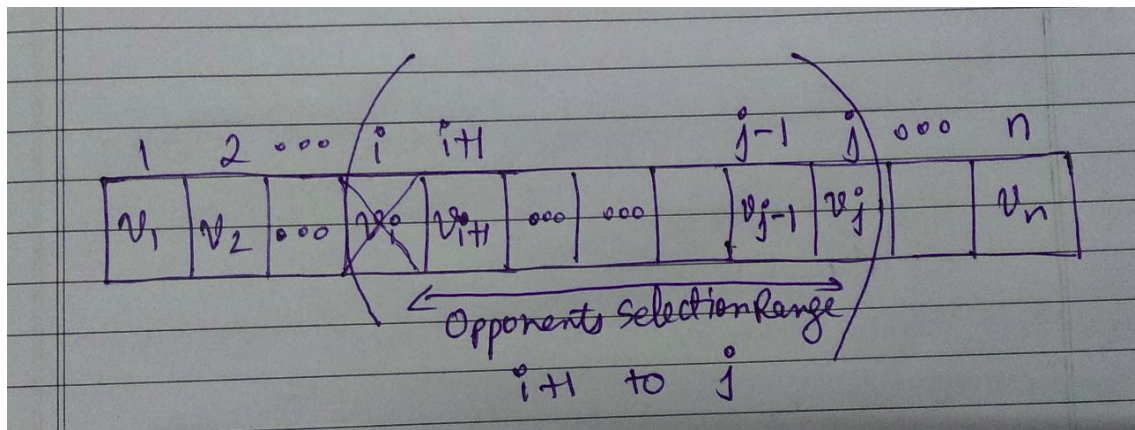 1 2 ∘∘∘ i i+1 j-1 j ∘∘∘ n
v₁ v₂ ∘∘∘ vᵢ vᵢ₊₁ ∘∘∘ ∘∘∘ vⱼ₋₁ vⱼ vₙ
Opponents Selection Range
i+1 to j